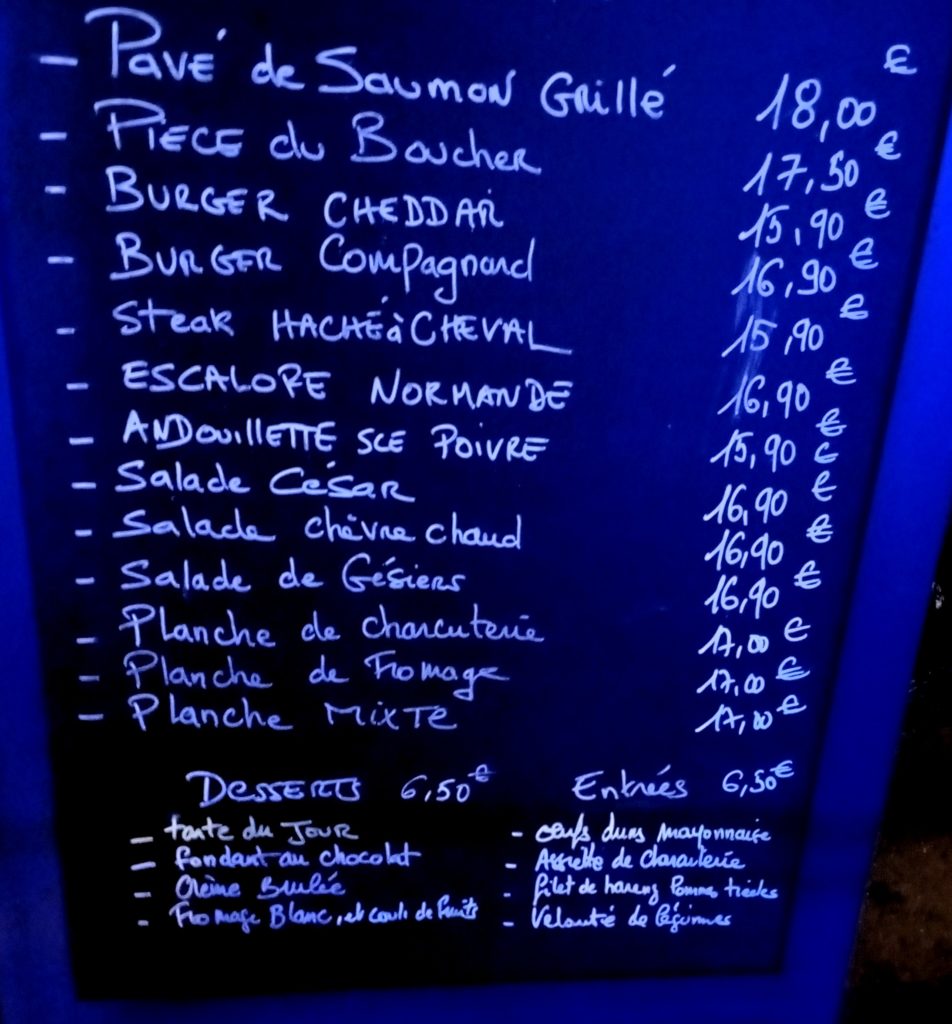 - Pavé de Saumon Grillé 18,00 €
- PIECE du Boucher 17,50 €
- BURGER CHEDDAR 15,90 €
- BURGER Compagnard 16,90 €
- Steak HACHÉ à CHEVAL 15,90 €
- ESCALOPE NORMANDE 16,90 €
- ANDOUILLETTE SCE POIVRE 15,90 €
- Salade César 16,90 €
- Salade chèvre chaud 16,90 €
- Salade de Gésiers 16,90 €
- Planche de charcuterie 17,00 €
- Planche de Fromage 17,00 €
- Planche MIXTE 17,00 €
DESSERTS 6,50 €
- tarte du JOUR
- fondant au chocolat
- Crème Brulée
- Fromage Blanc, et couli de fruits
Entrées 6,50 €
- œufs durs mayonnaise
- Assiette de Charcuterie
- filet de hareng Pomme tièdes
- Velouté de légumes